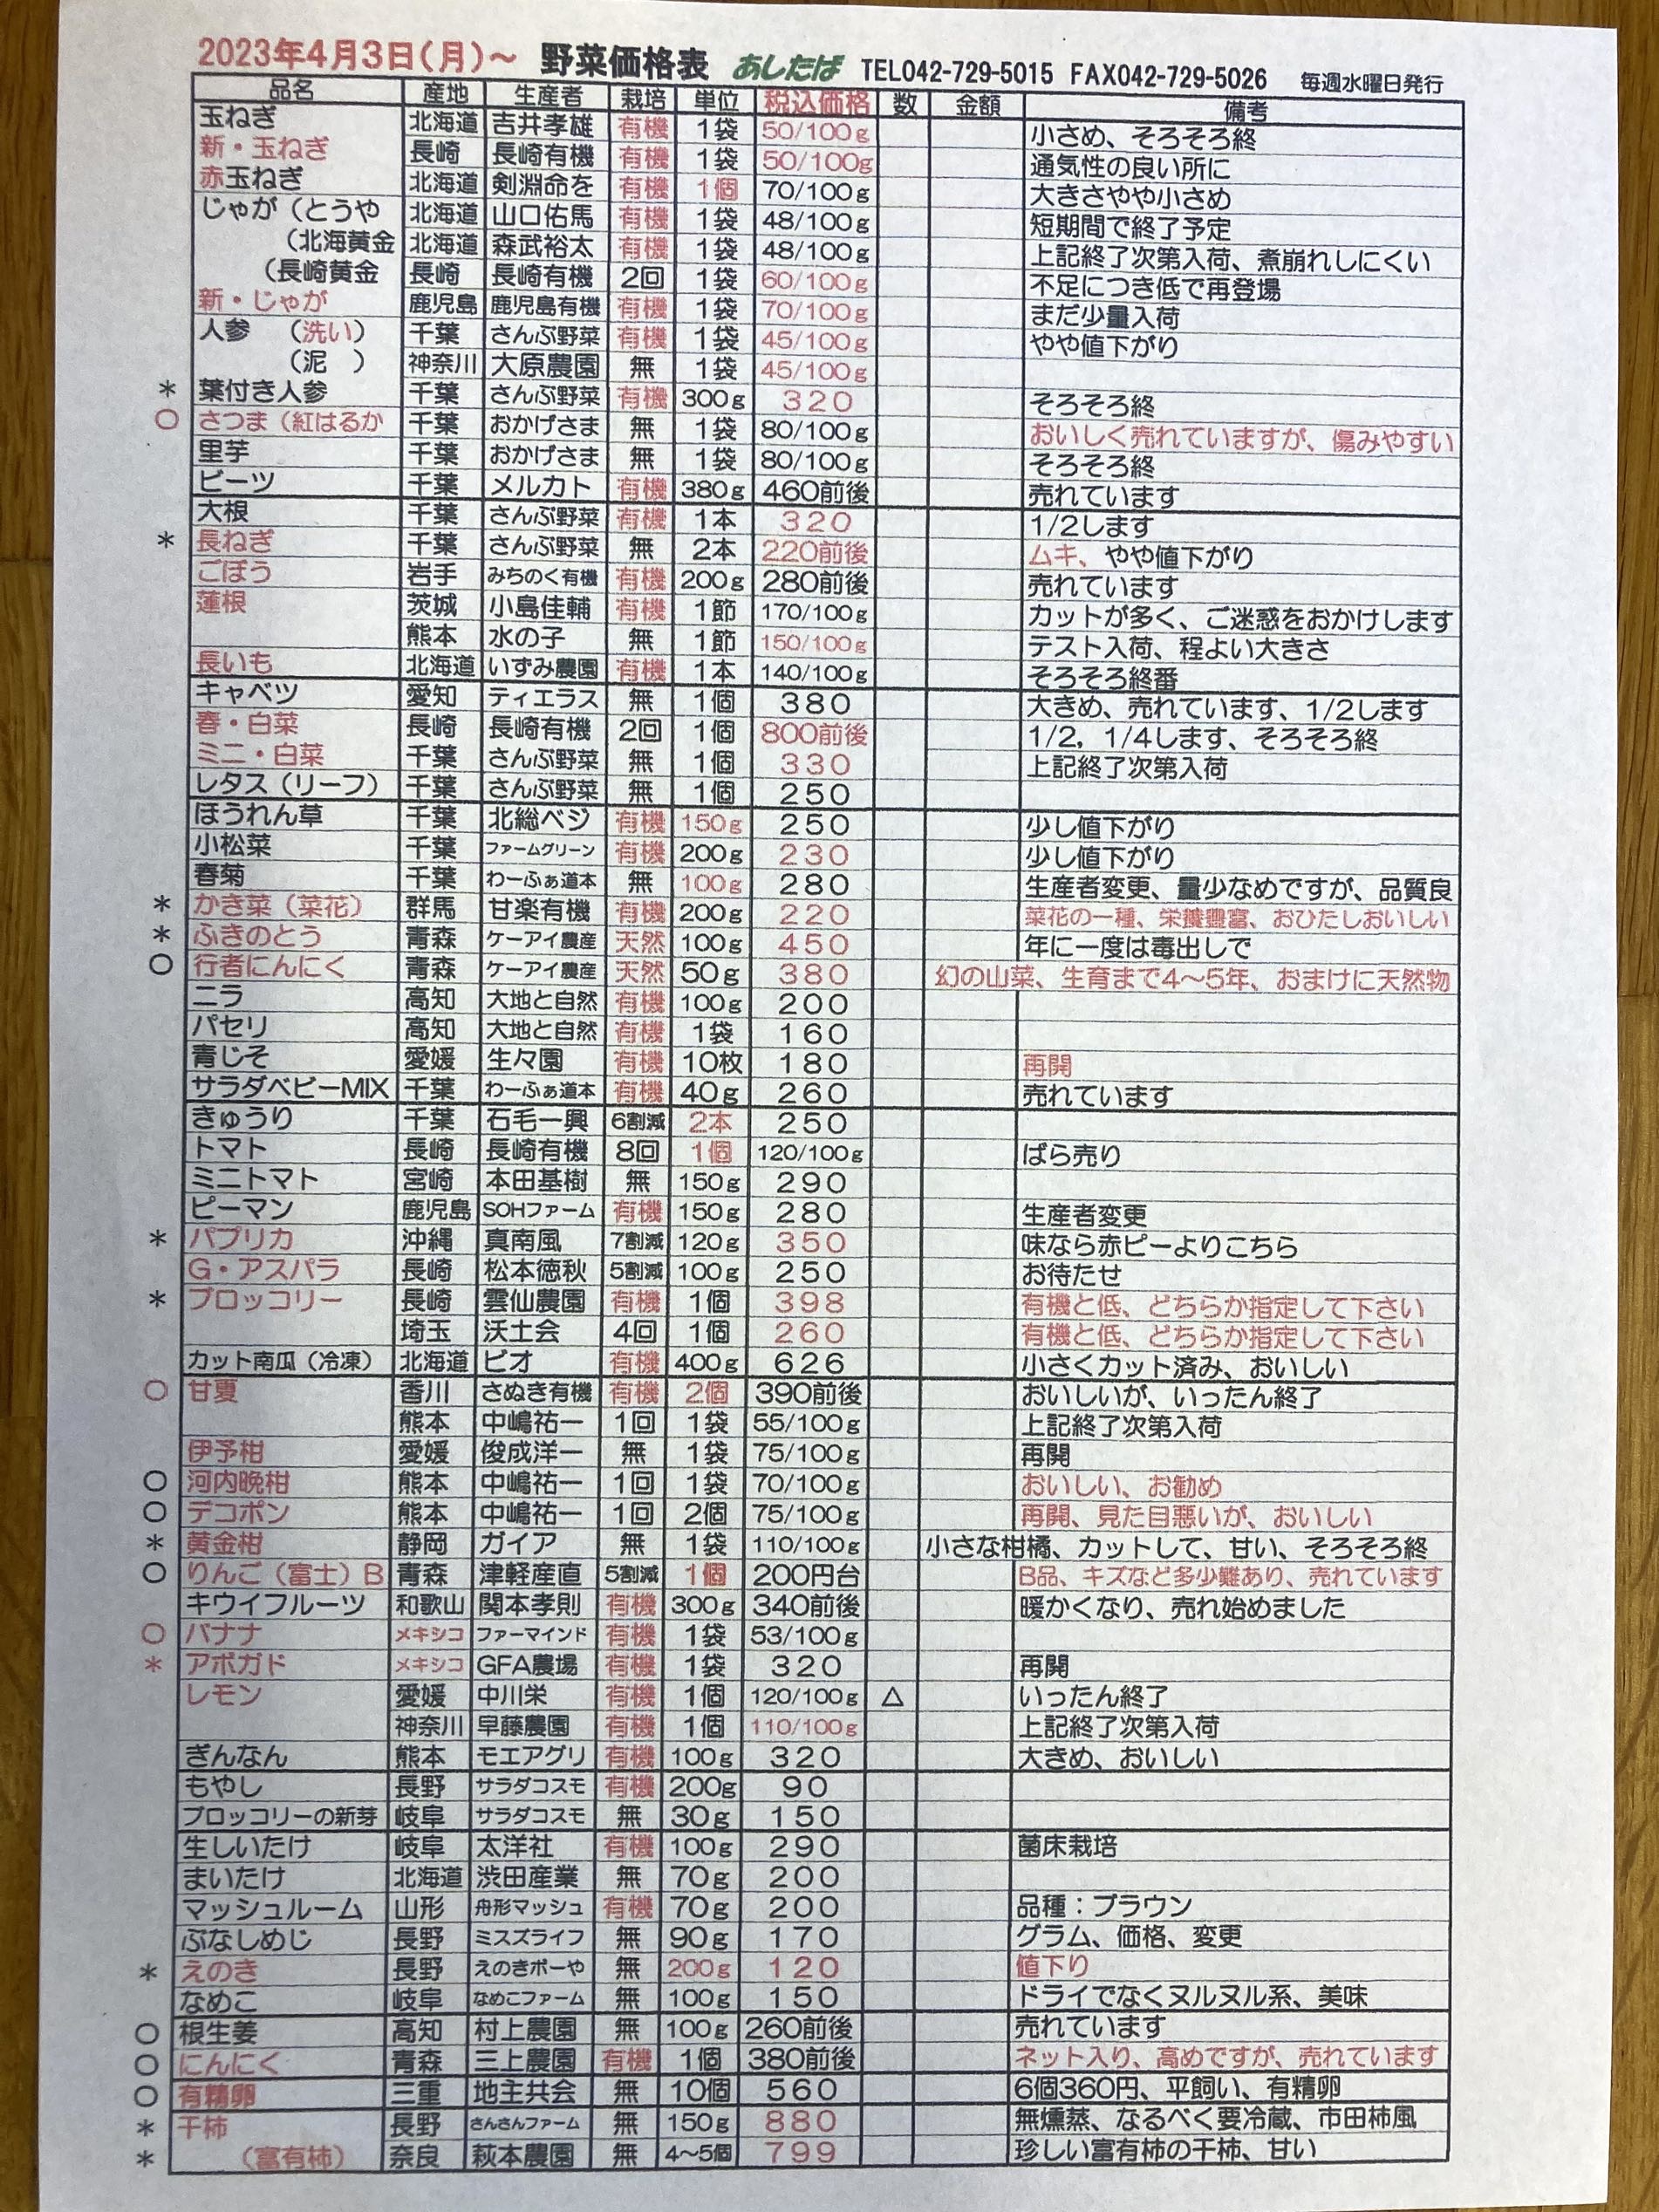 2023年4月3日(月)～ 野菜価格表 あしたば TEL042-729-5015 FAX042-729-5026 毎週水曜日発行
品名 産地 生産者 栽培 単位 税込価格 数 金額 備考
玉ねぎ 北海道 吉井孝雄 有機 1袋 50/100g 小さめ、そろそろ終
新・玉ねぎ 長崎 長崎有機 有機 1袋 50/100g 通気性の良い所に
赤玉ねぎ 北海道 剣淵命を 有機 1個 70/100g 大きさやや小さめ
じゃが（とうや 北海道 山口佑馬 有機 1袋 48/100g 短期間で終了予定
（北海黄金 北海道 森武裕太 有機 1袋 48/100g 上記終了次第入荷、煮崩れしにくい
（長崎黄金 長崎 長崎有機 2回 1袋 60/100g 不足につき低で再登場
新・じゃが 鹿児島 鹿児島有機 有機 1袋 70/100g まだ少量入荷
人参 （洗い） 千葉 さんぶ野菜 有機 1袋 45/100g やや値下がり
（泥 ） 神奈川 大原農園 無 1袋 45/100g
* 葉付き人参 千葉 さんぶ野菜 有機 300g 320 そろそろ終
○ さつま（紅はるか 千葉 おかげさま 無 1袋 80/100g おいしく売れていますが、傷みやすい
里芋 千葉 おかげさま 無 1袋 80/100g そろそろ終
ビーツ 千葉 メルカト 有機 380g 460前後 売れています
大根 千葉 さんぶ野菜 有機 1本 320 1/2します
* 長ねぎ 千葉 さんぶ野菜 無 2本 220前後 ムキ、やや値下がり
ごぼう 岩手 みちのく有機 有機 200g 280前後 売れています
蓮根 茨城 小島佳輔 有機 1節 170/100g カットが多く、ご迷惑をおかけします
熊本 水の子 無 1節 150/100g テスト入荷、程よい大きさ
長いも 北海道 いずみ農園 有機 1本 140/100g そろそろ終番
キャベツ 愛知 ティエラス 無 1個 380 大きめ、売れています、1/2します
春・白菜 長崎 長崎有機 2回 1個 800前後 1/2，1/4します、そろそろ終
ミニ・白菜 千葉 さんぶ野菜 無 1個 330 上記終了次第入荷
レタス（リーフ） 千葉 さんぶ野菜 無 1個 250
ほうれん草 千葉 北総ベジ 有機 150g 250 少し値下がり
小松菜 千葉 ファームグリーン 有機 200g 230 少し値下がり
春菊 千葉 わーふぁ道本 無 100g 280 生産者変更、量少なめですが、品質良
* かき菜（菜花） 群馬 甘楽有機 有機 200g 220 菜花の一種、栄養豊富、おひたしおいしい
* ふきのとう 青森 ケーアイ農産 天然 100g 450 年に一度は毒出しで
○ 行者にんにく 青森 ケーアイ農産 天然 50g 380 幻の山菜、生育まで4～5年、おまけに天然物
ニラ 高知 大地と自然 有機 100g 200
パセリ 高知 大地と自然 有機 1袋 160
青じそ 愛媛 生々園 有機 10枚 180 再開
サラダベビーMIX 千葉 わーふぁ道本 有機 40g 260 売れています
きゅうり 千葉 石毛一興 6割減 2本 250
トマト 長崎 長崎有機 8回 1個 120/100g ばら売り
ミニトマト 宮崎 本田基樹 無 150g 290
ピーマン 鹿児島 SOHファーム 有機 150g 280 生産者変更
* パプリカ 沖縄 真南風 7割減 120g 350 味なら赤ピーよりこちら
G・アスパラ 長崎 松本徳秋 5割減 100g 250 お待たせ
* ブロッコリー 長崎 雲仙農園 有機 1個 398 有機と低、どちらか指定して下さい
埼玉 沃土会 4回 1個 260 有機と低、どちらか指定して下さい
カット南瓜（冷凍） 北海道 ビオ 有機 400g 626 小さくカット済み、おいしい
○ 甘夏 香川 さぬき有機 有機 2個 390前後 おいしいが、いったん終了
熊本 中嶋祐一 1回 1袋 55/100g 上記終了次第入荷
伊予柑 愛媛 俊成洋一 無 1袋 75/100g 再開
○ 河内晩柑 熊本 中嶋祐一 1回 1袋 70/100g おいしい、お勧め
○ デコポン 熊本 中嶋祐一 1回 2個 75/100g 再開、見た目悪いが、おいしい
* 黄金柑 静岡 ガイア 無 1袋 110/100g 小さな柑橘、カットして、甘い、そろそろ終
○ りんご（富士）B 青森 津軽産直 5割減 1個 200円台 B品、キズなど多少難あり、売れています
キウイフルーツ 和歌山 関本孝則 有機 300g 340前後 暖かくなり、売れ始めました
○ バナナ メキシコ ファーマインド 有機 1袋 53/100g
* アボガド メキシコ GFA農場 有機 1袋 320 再開
レモン 愛媛 中川栄 有機 1個 120/100g △ いったん終了
神奈川 早藤農園 有機 1個 110/100g 上記終了次第入荷
ぎんなん 熊本 モエアグリ 有機 100g 320 大きめ、おいしい
もやし 長野 サラダコスモ 有機 200g 90
ブロッコリーの新芽 岐阜 サラダコスモ 無 30g 150
生しいたけ 岐阜 太洋社 有機 100g 290 菌床栽培
まいたけ 北海道 渋田産業 無 70g 200
マッシュルーム 山形 舟形マッシュ 有機 70g 200 品種：ブラウン
ぶなしめじ 長野 ミスズライフ 無 90g 170 グラム、価格、変更
* えのき 長野 えのきボーや 無 200g 120 値下り
なめこ 岐阜 なめこファーム 無 100g 150 ドライでなくヌルヌル系、美味
○ 根生姜 高知 村上農園 無 100g 260前後 売れています
○ にんにく 青森 三上農園 有機 1個 380前後 ネット入り、高めですが、売れています
○ 有精卵 三重 地主共会 無 10個 560 6個360円、平飼い、有精卵
* 干柿 長野 さんさんファーム 無 150g 880 無燻蒸、なるべく要冷蔵、市田柿風
* （富有柿） 奈良 萩本農園 無 4～5個 799 珍しい富有柿の干柿、甘い